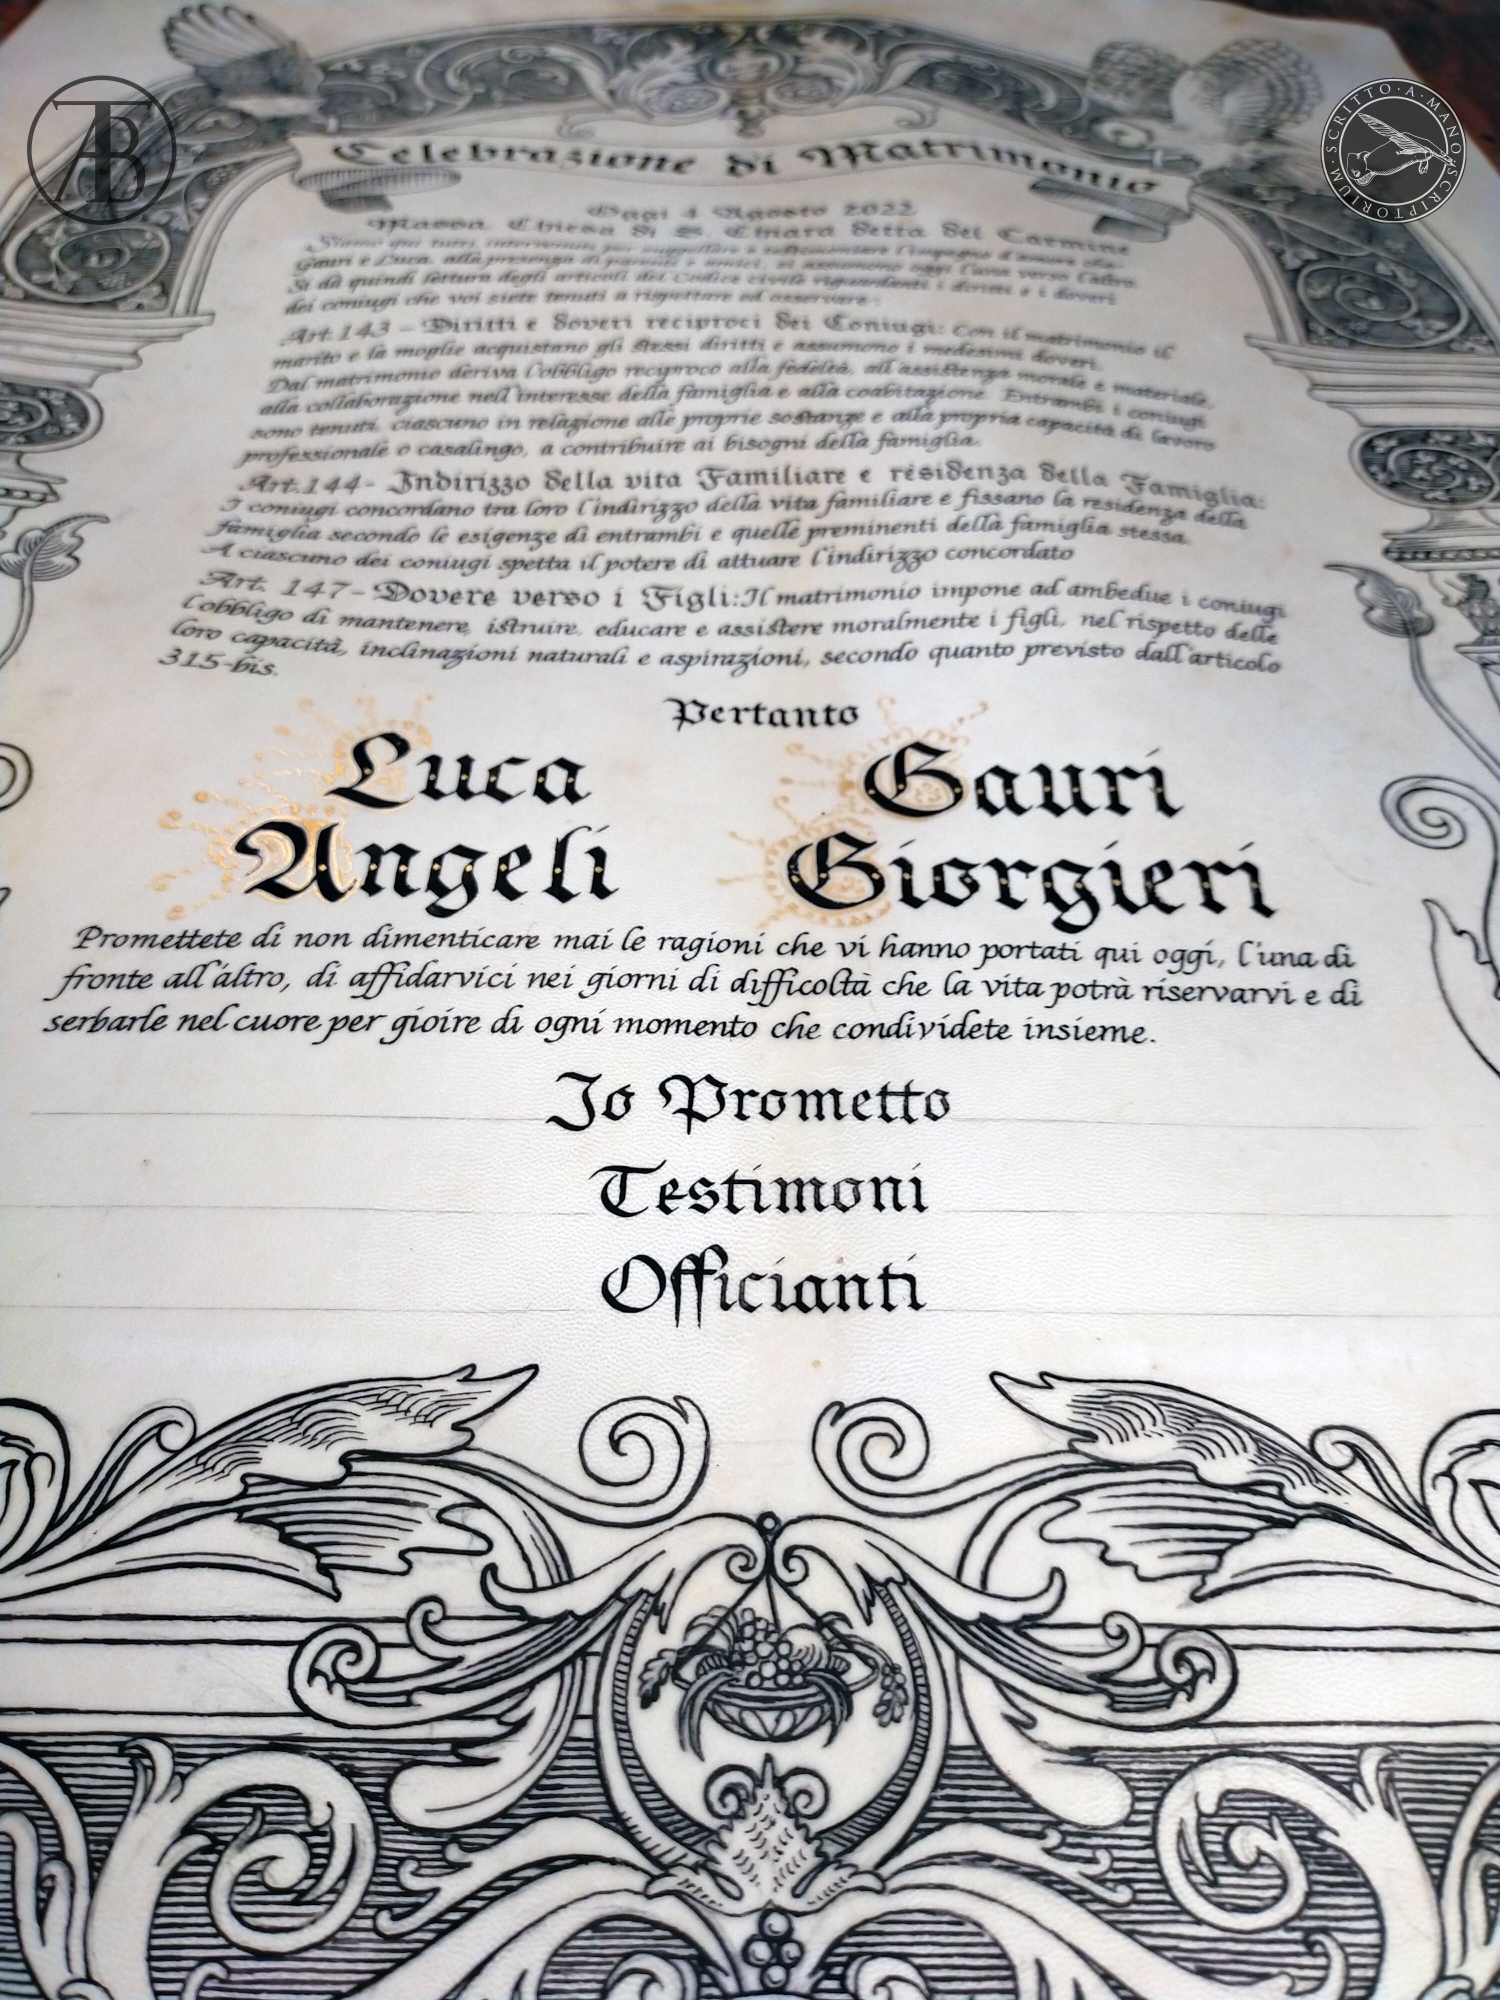 TAB
SCRITTO·A·MANO
SCRIPTORIUM
Celebrazione di Matrimonio
Oggi 4 Agosto 2022
Massa, Chiesa di S. Chiara detta del Carmine
Siamo qui tutti, intervenuti per suggellare e l'impegno d'amore che
Gauri e Luca, alla presenza di parenti e amici, si assumono oggi l'uno verso l'altro.
Si dà quindi lettura degli articoli del Codice civile riguardanti i diritti e i doveri
dei coniugi che voi siete tenuti a rispettare ed osservare:
Art.143 – Diritti e doveri reciproci dei Coniugi: Con il matrimonio il
marito e la moglie acquistano gli stessi diritti e assumono i medesimi doveri.
Dal matrimonio deriva l'obbligo reciproco alla fedeltà, all'assistenza morale e materiale,
alla collaborazione nell'interesse della famiglia e alla coabitazione. Entrambi i coniugi
sono tenuti, ciascuno in relazione alle proprie sostanze e alla propria capacità di lavoro
professionale o casalingo, a contribuire ai bisogni della famiglia.
Art.144- Indirizzo della vita Familiare e residenza della Famiglia:
I coniugi concordano tra loro l'indirizzo della vita familiare e fissano la residenza della
famiglia secondo le esigenze di entrambi e quelle preminenti della famiglia stessa.
A ciascuno dei coniugi spetta il potere di attuare l'indirizzo concordato
Art. 147- Dovere verso i Figli: Il matrimonio impone ad ambedue i coniugi
l'obbligo di mantenere, istruire, educare e assistere moralmente i figli, nel rispetto delle
loro capacità, inclinazioni naturali e aspirazioni, secondo quanto previsto dall'articolo
315-bis.
Pertanto
Luca Gauri
Angeli Giorgieri
Promettete di non dimenticare mai le ragioni che vi hanno portati qui oggi, l'una di
fronte all'altro, di affidarvici nei giorni di difficoltà che la vita potrà riservarvi e di
serbarle nel cuore per gioire di ogni momento che condividete insieme.
Io Prometto
Testimoni
Officianti